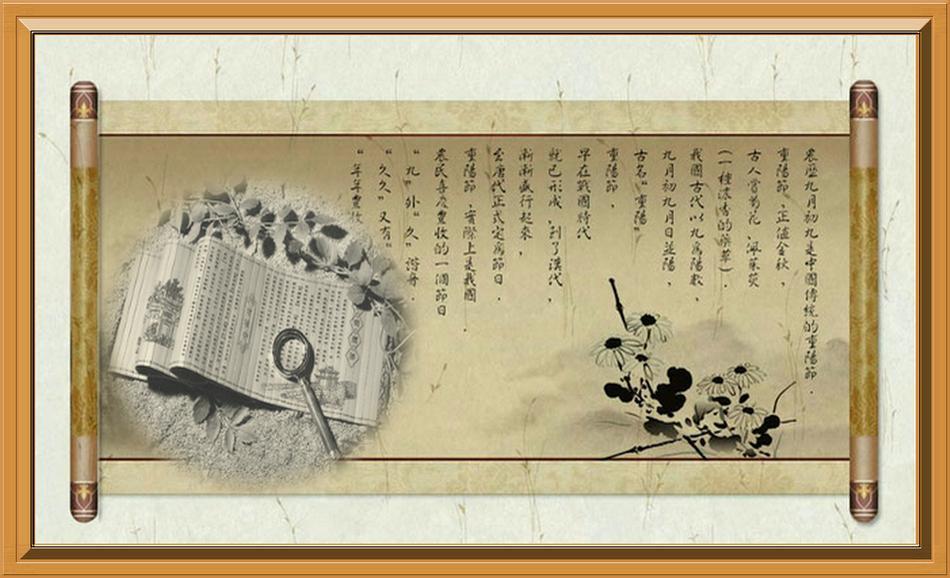 農歷九月初九是中國傳統的重陽節．
重陽節，正值金秋，
古人賞菊花，佩茱萸
（一種濃香的藥草）．
我國古代以九為陽數，
九月初九月日並陽，
古名“重陽”
重陽節，
早在戰國時代
就已形成，到了漢代，
漸漸盛行起來，
至唐代正式定為節日．
重陽節，實際上是我國
農民喜慶豐收的一個節日．
“九”外“久”諧音．
“久久”又有“
“年年豐收